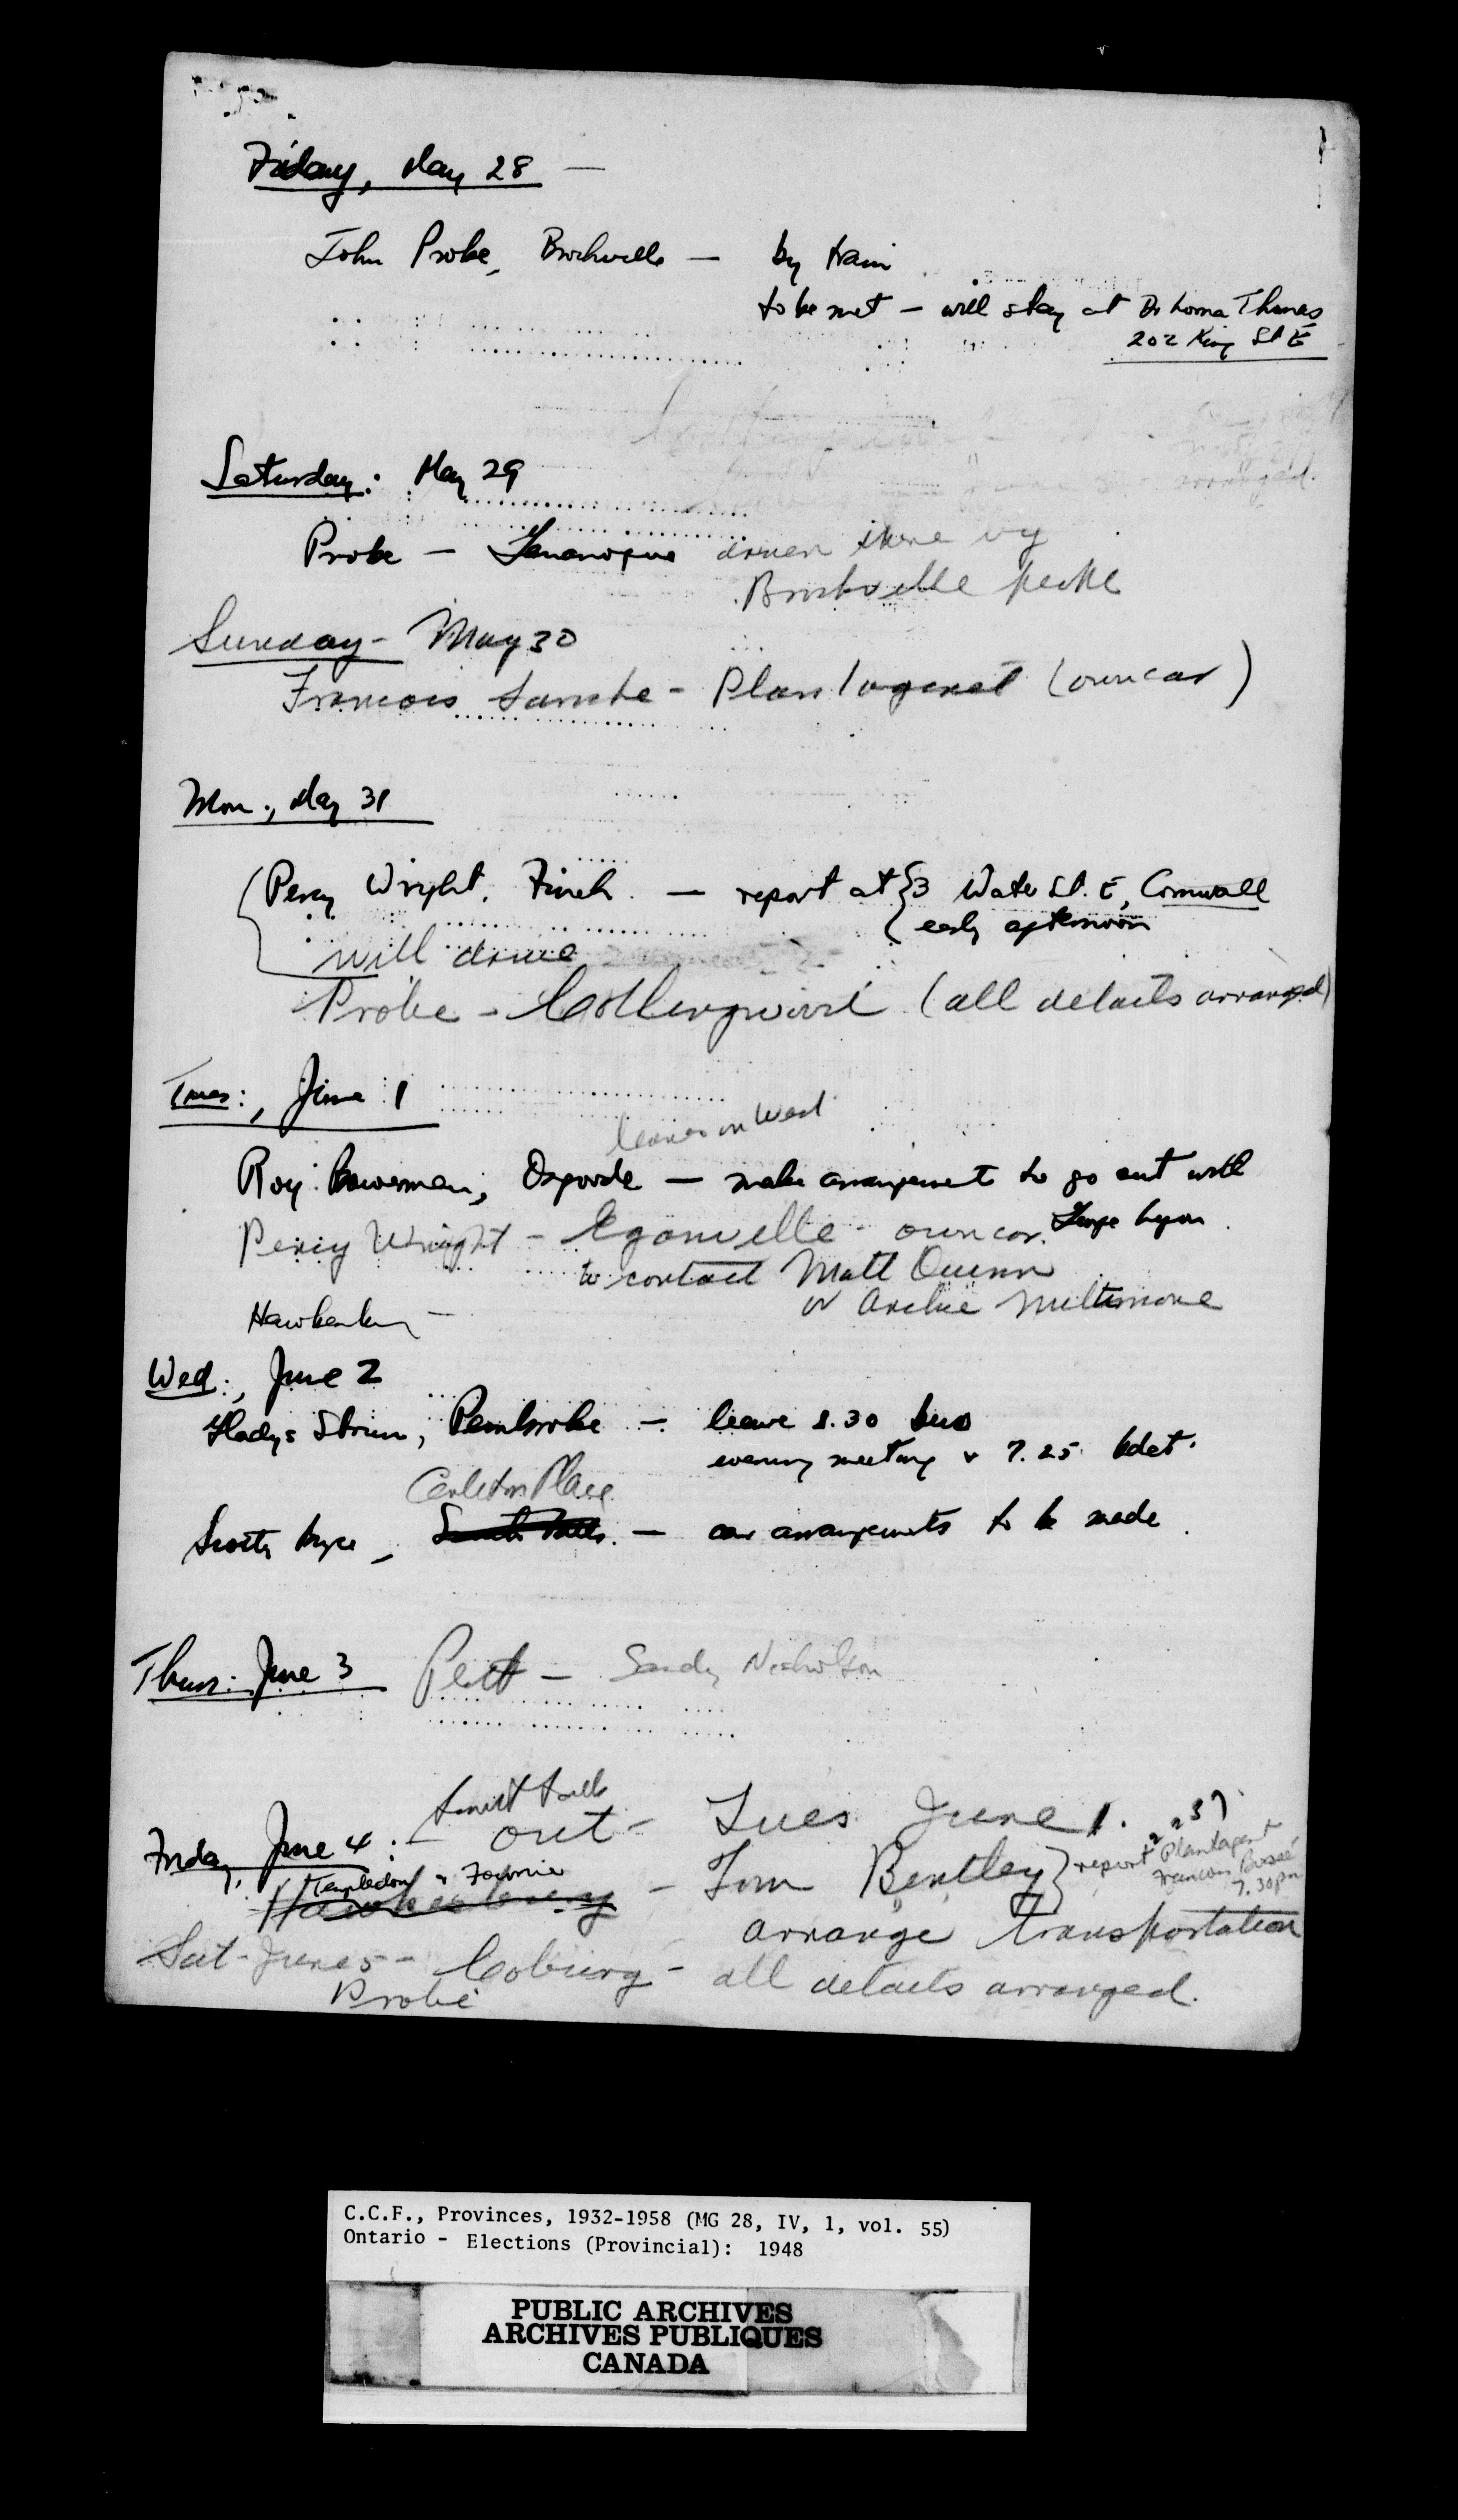 Friday, May 28 —
John Probe, Brockville — by train
to be met — will stay at Dr Lorna Thomas
202 King St E
Saturday: May 29
Probe — Gananoque driven there by
Brockville people
Sunday - May 30
Francois Lanche - Plantagenet (own car)
Mon., May 31
Percy Wright, Finch — report at 3 Water St. E, Cornwall
early afternoon
will drive
Probe - Collingwood (all details arranged)
Tues:, June 1
leaves on Wed.
Roy Bowerman, Osgoode — make arrangements to go out with
Percy Wright - Eganville - own car. George
to contact Matt Quinn
or Archie
Hawkesbury —
Wed:, June 2
Gladys Strum, Pembroke — leave 1.30 bus
evening meeting & 7.25 bdct.
Carleton Place
Smiths Falls. — car arrangements to be made.
Thurs: June 3 Perth — Sandy Nicholson
Smith Falls
Friday, June 4: — out - Tues June 1. 2237
Templedon & Fournier
Hawkesbury — Tom Bentley } report Plantagenet
Francois
7.30 pm
arrange transportation
Sat - June 5 - Cobourg - all details arranged.
Probe
C.C.F., Provinces, 1932-1958 (MG 28, IV, 1, vol. 55)
Ontario - Elections (Provincial): 1948
PUBLIC ARCHIVES
ARCHIVES PUBLIQUES
CANADA